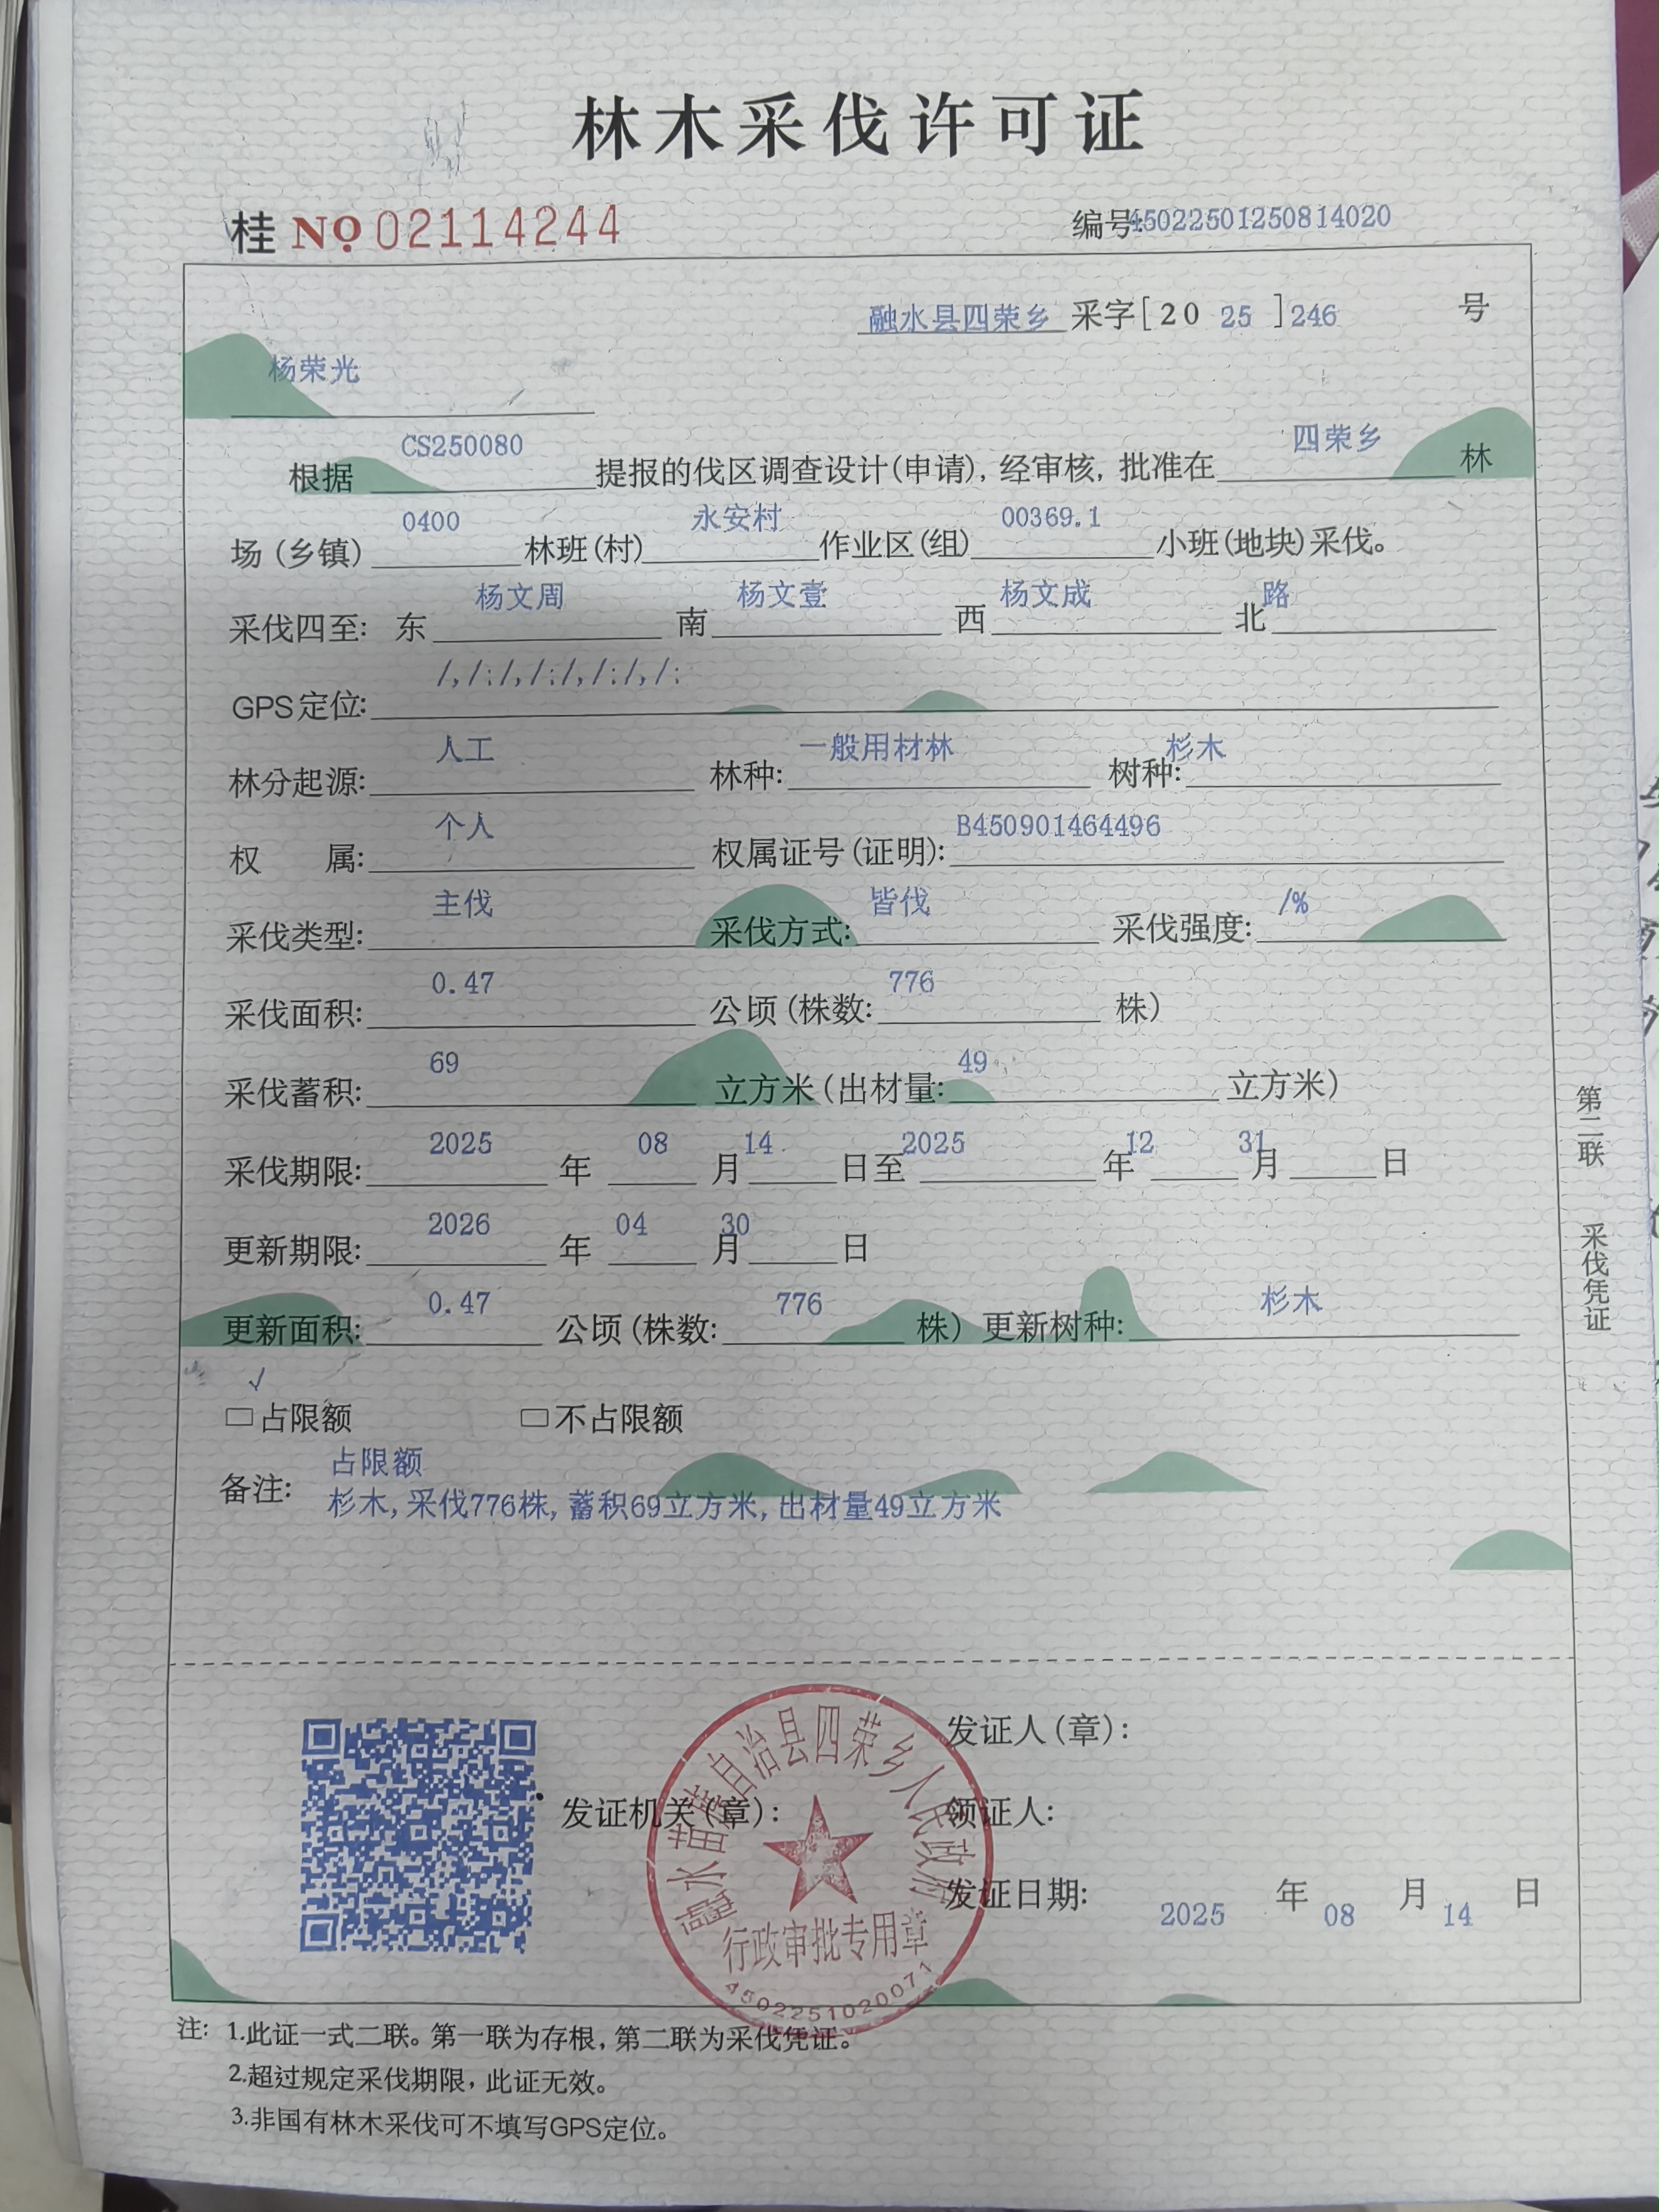 林木采伐许可证
桂 NO 02114244 编号:45022501250814020
融水县四荣乡 采字[2025]246 号
杨荣光
根据 CS250080 提报的伐区调查设计(申请),经审核,批准在 四荣乡 林
场(乡镇) 0400 林班(村) 永安村 作业区(组) 00369.1 小班(地块)采伐。
采伐四至: 东 杨文周 南 杨文壹 西 杨文成 北 路
GPS定位: /,/;/,/;/,/;/,/;
林分起源: 人工 林种: 一般用材林 树种: 杉木
权 属: 个人 权属证号(证明): B450901464496
采伐类型: 主伐 采伐方式: 皆伐 采伐强度: /%
采伐面积: 0.47 公顷(株数: 776 株)
采伐蓄积: 69 立方米(出材量: 49 立方米)
采伐期限: 2025 年 08 月 14 日至 2025 年 12 月 31 日
更新期限: 2026 年 04 月 30 日
更新面积: 0.47 公顷(株数: 776 株) 更新树种: 杉木
√
□占限额 □不占限额
备注: 占限额
杉木,采伐776株,蓄积69立方米,出材量49立方米
第二联 采伐凭证
发证人(章):
发证机关(章):
领证人:
发证日期: 2025 年 08 月 14 日
融水苗族自治县四荣乡人民政府
行政审批专用章
4502251020071
注: 1.此证一式二联。第一联为存根,第二联为采伐凭证。
2.超过规定采伐期限,此证无效。
3.非国有林木采伐可不填写GPS定位。